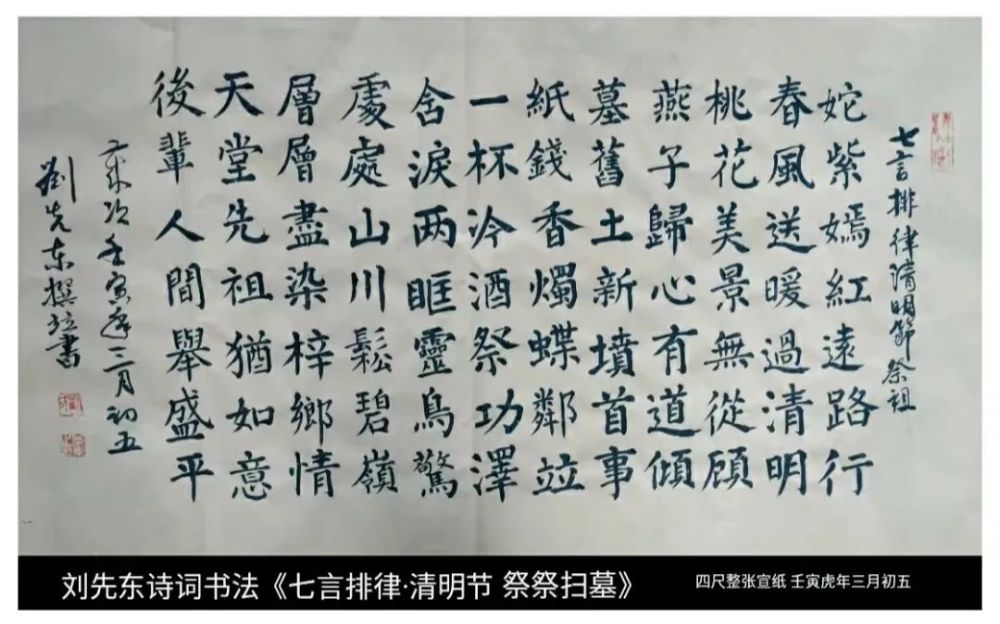 七言排律清明節祭祖
姹紫嫣紅遠路行
春風送暖過清明
桃花美景無從顧
燕子歸心有道傾
墓舊土新墳首事
紙錢香燭蝶鄰竝
一杯冷酒祭功澤
含淚两眶靈鳥驚
處處山川鬆碧嶺
層層盡染梓鄉情
天堂先祖猶如意
後輩人間舉盛平
歲次壬寅年三月初五
劉先東撰竝書
刘先东诗词书法《七言排律·清明节 祭祭扫墓》
四尺整张宣纸 壬寅虎年三月初五